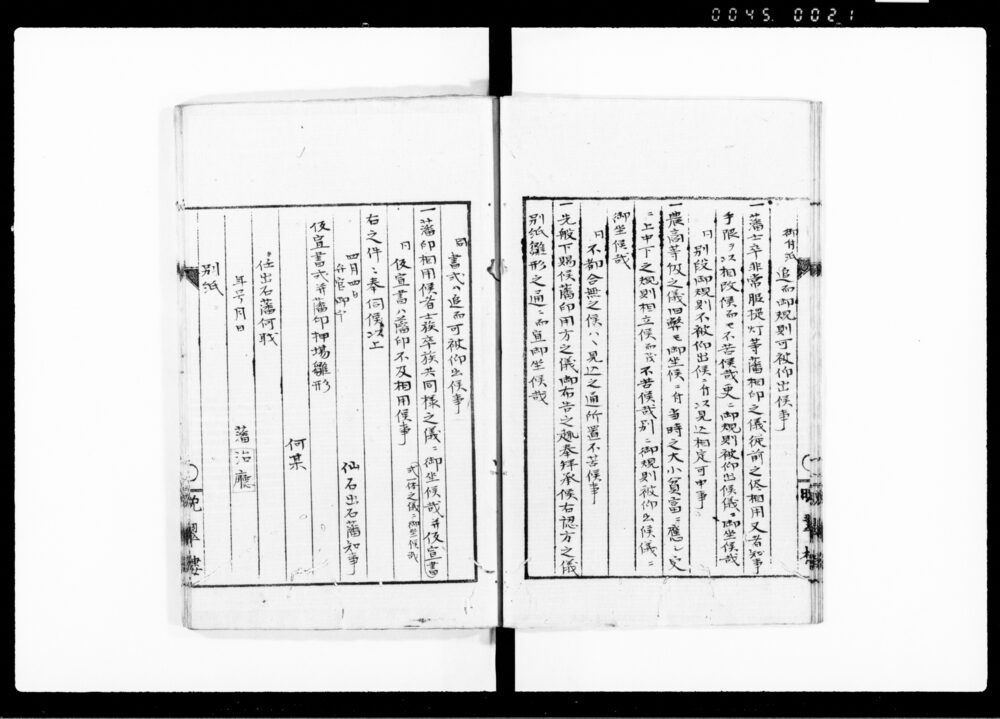 0045. 0021
御付紙 追而御規則可被仰出候事
一藩士卒非常服提灯等藩相印之儀従前之侭相用又者知事
手限ヲ以相改候而モ不苦候哉更ニ御規則被仰出候儀ニ御坐候哉
同 別段御規則不被仰出候ニ付以見込相定可申事
一農商等級之儀旧弊モ御坐候ニ付当時之大小貧富ニ應シ更
ニ上中下之規則相立候而茂不苦候哉別ニ御規則被仰出候儀ニ
御坐候哉
同 不都合無之候ハヽ見込之通所置不苦候事
一先般下賜候藩印用方之儀御布告之趣奉拜承候右認方之儀
別紙雛形之通ニ而宜御坐候哉
同 書式ハ追而可被仰出候事
一藩印相用候者士族卒族共同様之儀ニ御坐候哉并仮宣書
式一体之儀ニ御坐候哉
同 仮宣書ハ藩印不及相用候事
右之件ニ奉伺候以上
四月四日 仙石出石藩知事
弁官御中
仮宣書式并藩印押場雛形
何某
任出石藩何職
年号月日 藩治廳
別紙